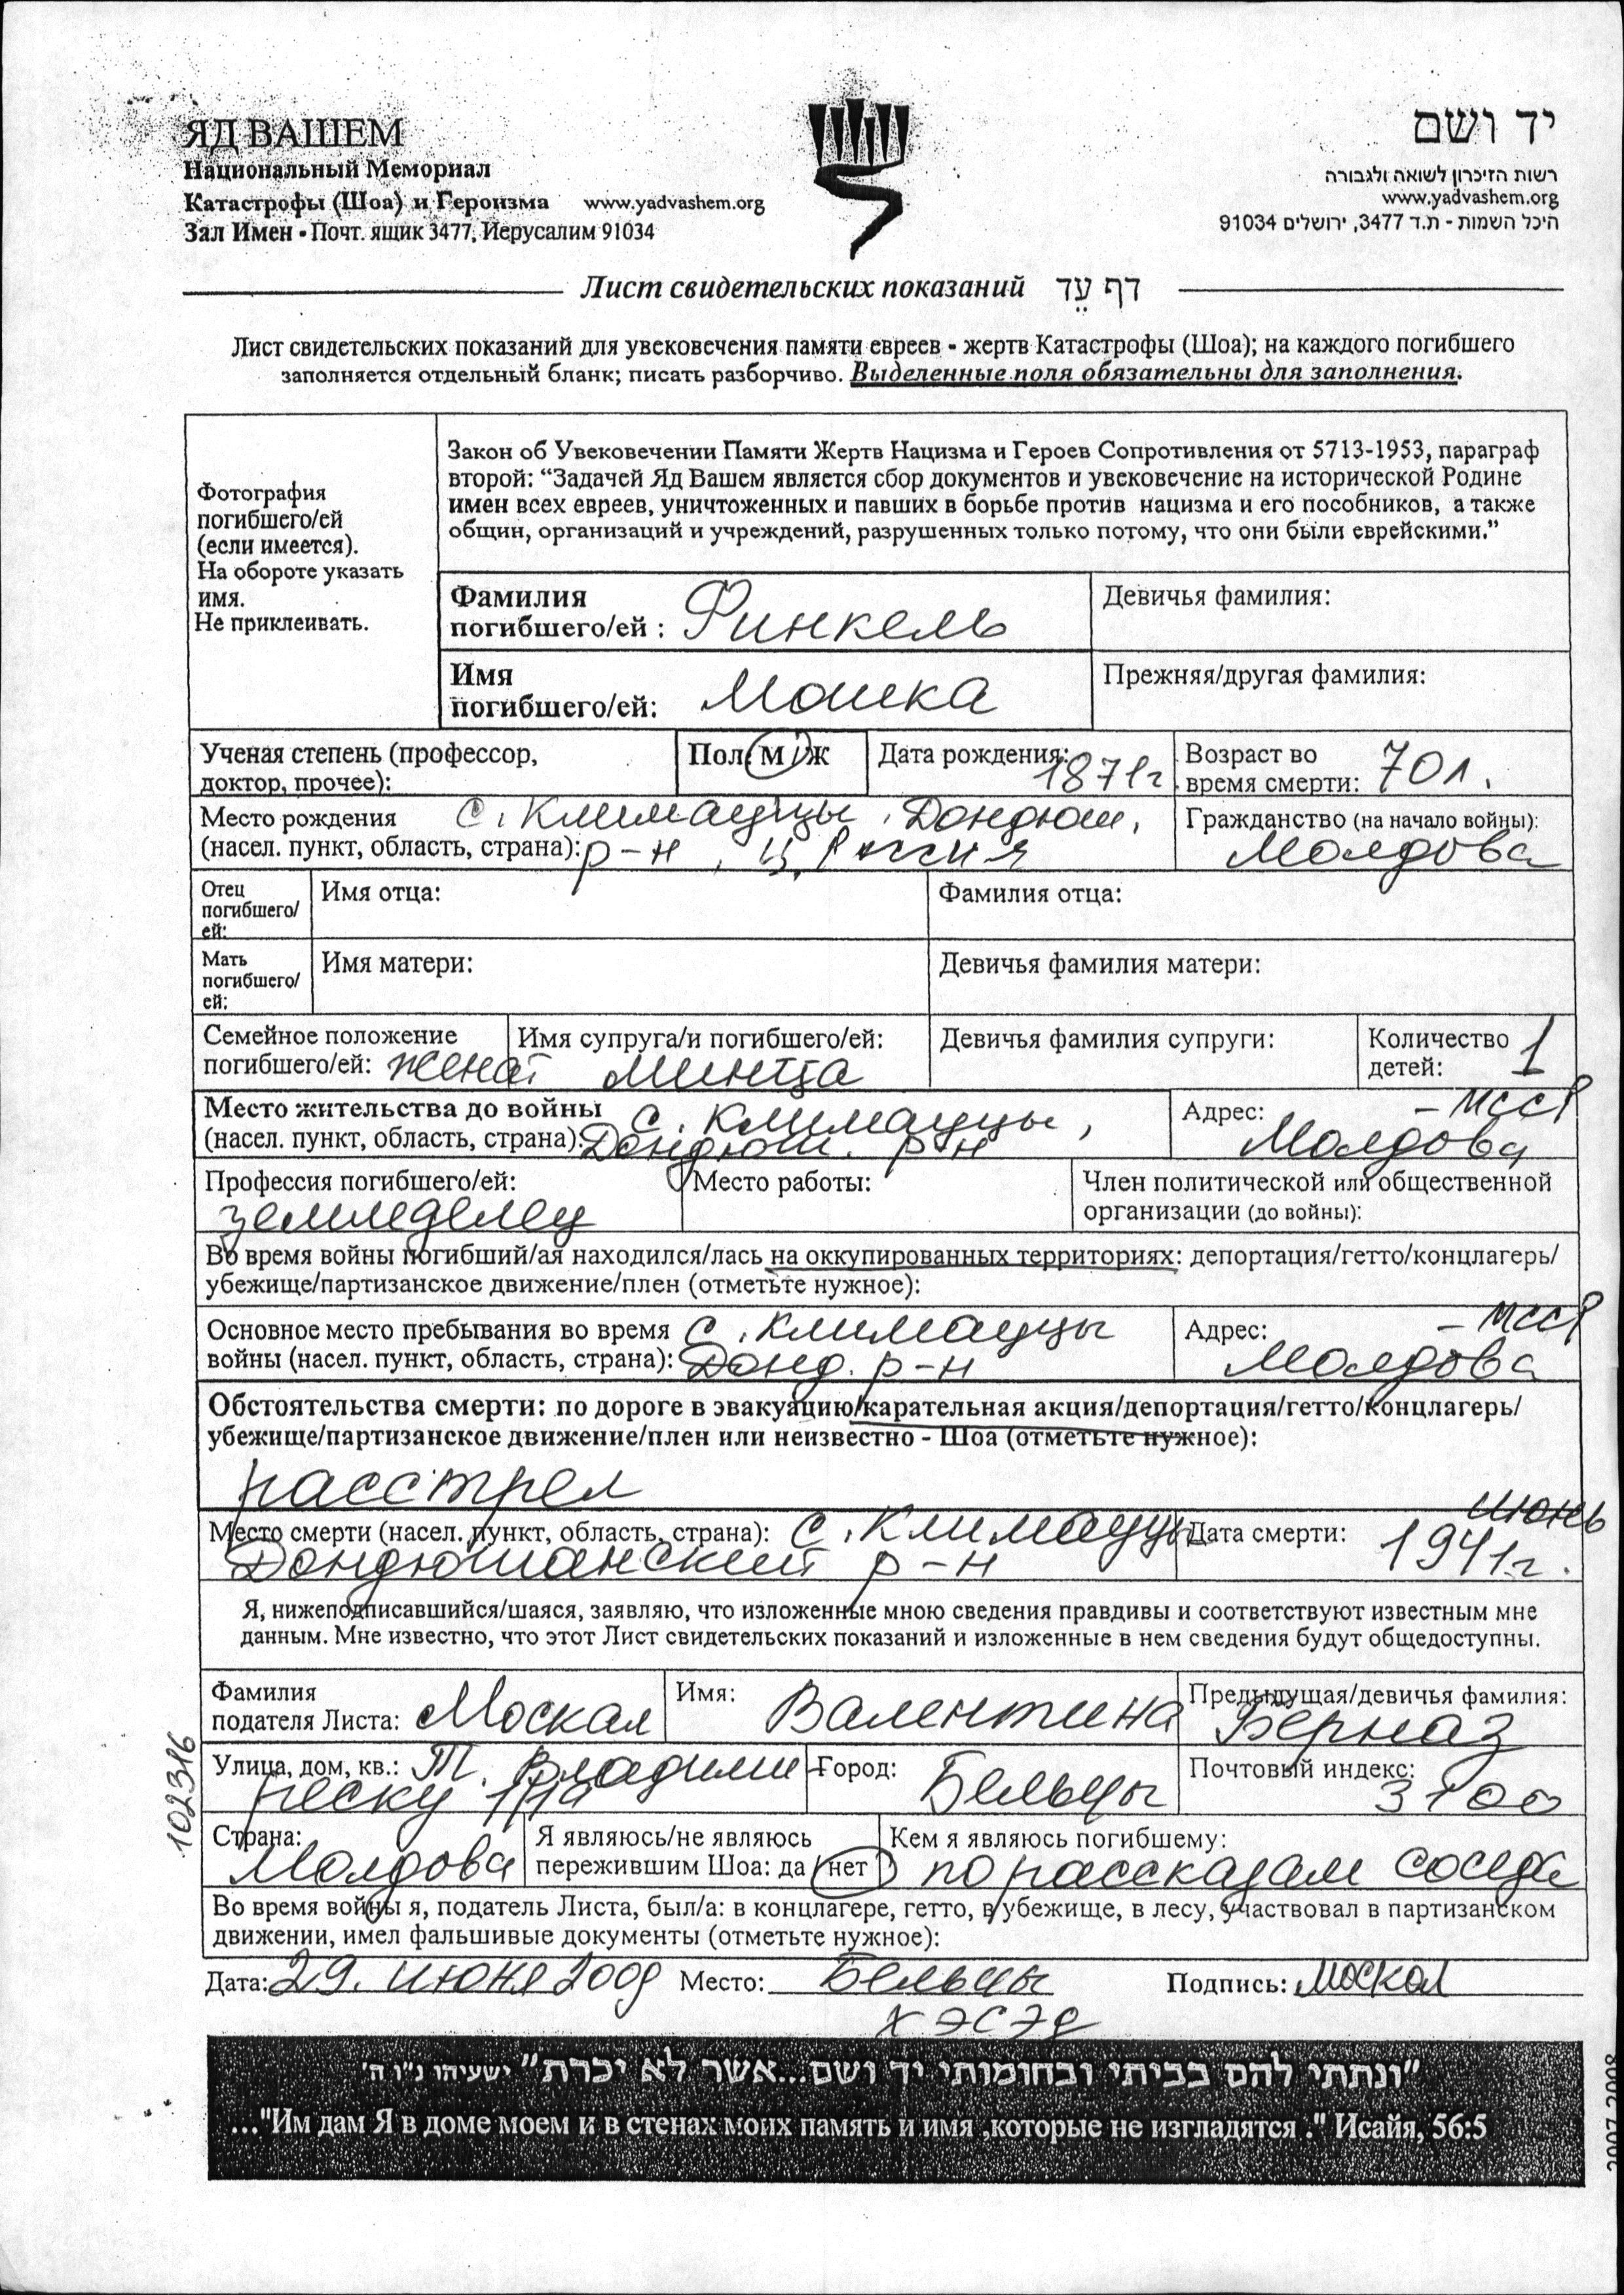 ЯД ВАШЕМ
Национальный Мемориал
Катастрофы (Шоа) и Героизма www.yadvashem.org
Зал Имен - Почт. ящик 3477, Иерусалим 91034
יד ושם
רשות הזיכרון לשואה ולגבורה
www.yadvashem.org
היכל השמות - ת.ד 3477, ירושלים 91034
Лист свидетельских показаний דף עֵד
Лист свидетельских показаний для увековечения памяти евреев - жертв Катастрофы (Шоа); на каждого погибшего
заполняется отдельный бланк; писать разборчиво. Выделенные поля обязательны для заполнения.
Фотография
погибшего/ей
(если имеется).
На обороте указать
имя.
Не приклеивать.
Закон об Увековечении Памяти Жертв Нацизма и Героев Сопротивления от 5713-1953, параграф
второй: “Задачей Яд Вашем является сбор документов и увековечение на исторической Родине
имен всех евреев, уничтоженных и павших в борьбе против нацизма и его пособников, а также
общин, организаций и учреждений, разрушенных только потому, что они были еврейскими.”
Фамилия
погибшего/ей : Финкель
Девичья фамилия:
Имя
погибшего/ей: Мошка
Прежняя/другая фамилия:
Ученая степень (профессор,
доктор, прочее):
Пол: М / Ж
Дата рождения: 1871г
Возраст во
время смерти: 70 л.
Место рождения с. Климауцы, Дондюш.
(насел. пункт, область, страна): р-н, ц. Россия
Гражданство (на начало войны):
Молдова
Отец
погибшего/
ей:
Имя отца:
Фамилия отца:
Мать
погибшего/
ей:
Имя матери:
Девичья фамилия матери:
Семейное положение
погибшего/ей: женат
Имя супруга/и погибшего/ей:
Минтца
Девичья фамилия супруги:
Количество
детей: 1
Место жительства до войны с. Климауцы,
(насел. пункт, область, страна): Дондюш. р-н
Адрес: - МССР
Молдова
Профессия погибшего/ей:
земледелец
Место работы:
Член политической или общественной
организации (до войны):
Во время войны погибший/ая находился/лась на оккупированных территориях: депортация/гетто/концлагерь/
убежище/партизанское движение/плен (отметьте нужное):
Основное место пребывания во время с. Климауцы
войны (насел. пункт, область, страна): Донд. р-н
Адрес: - МССР
Молдова
Обстоятельства смерти: по дороге в эвакуацию/карательная акция/депортация/гетто/концлагерь/
убежище/партизанское движение/плен или неизвестно - Шоа (отметьте нужное):
расстрел
Место смерти (насел. пункт, область, страна): с. Климауцы
Дондюшанский р-н
Дата смерти: июнь
1941г.
Я, нижеподписавшийся/шаяся, заявляю, что изложенные мною сведения правдивы и соответствуют известным мне
данным. Мне известно, что этот Лист свидетельских показаний и изложенные в нем сведения будут общедоступны.
Фамилия
подателя Листа: Москал
Имя: Валентина
Предыдущая/девичья фамилия:
Берназ
Улица, дом, кв.: Т. Владими-
реску
Город:
Бельцы
Почтовый индекс:
3100
Страна:
Молдова
Я являюсь/не являюсь
пережившим Шоа: да / нет
Кем я являюсь погибшему:
по рассказам соседа
Во время войны я, податель Листа, был/а: в концлагере, гетто, в убежище, в лесу, участвовал в партизанском
движении, имел фальшивые документы (отметьте нужное):
Дата: 29. июня 2009 Место: Бельцы Подпись: Москал
ХЭСЭД
102316
"ונתתי להם בביתי ובחומותי יד ושם...אשר לא יכרת" ישעיהו נ"ו ה'
..."Им дам Я в доме моем и в стенах моих память и имя ,которые не изгладятся ." Исайя, 56:5